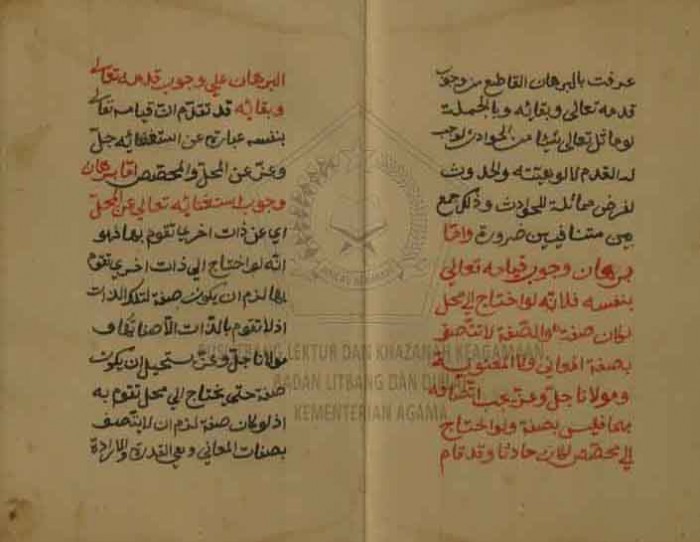 عرفت بالبرهان القاطع من وجوب
قدمه تعالى وبقائه وبالجملة
لوماثل تعالى شيئا من الحوادث لوجب
له القدم لالوهيته والحدوث
لفرض مماثلة للحوادث وذلك جمع
بين متنافيين ضرورة واما
برهان وجوب قيامه تعالى
بنفسه فلانه لو احتاج الى محل
لكان صفة والصفة لا تتصف
بصفة المعاني ولا المعنوية
ومولانا جل وعز يجب اتصافه
بهما فليس بصفة ولو احتاج
الى مخصص لكان حادثا وقد قام
البرهان على وجوب قدمه تعالى
وبقائه قد تقدم ان قيامه تعالى
بنفسه عبارة عن استغنائه جل
وعز عن المحل والمخصص اما برهان
وجوب استغنائه تعالى عن المحل
اي عن ذات اخرى تقوم بها فهو
انه لو احتاج الى ذات اخرى تقوم
بها لزم ان يكون صفة لتلك الذات
اذ لا تقوم بالذات الا صفاتها و
مولانا جل وعز يستحيل ان يكون
صفة حتى يحتاج الى محل تقوم به
اذ لو كان صفة لزم ان لا يتصف
بصفات المعاني وهي القدرة والارادة
PUSLITBANG LEKTUR DAN KHAZANAH KEAGAMAAN
BADAN LITBANG DAN DIKLAT
KEMENTERIAN AGAMA